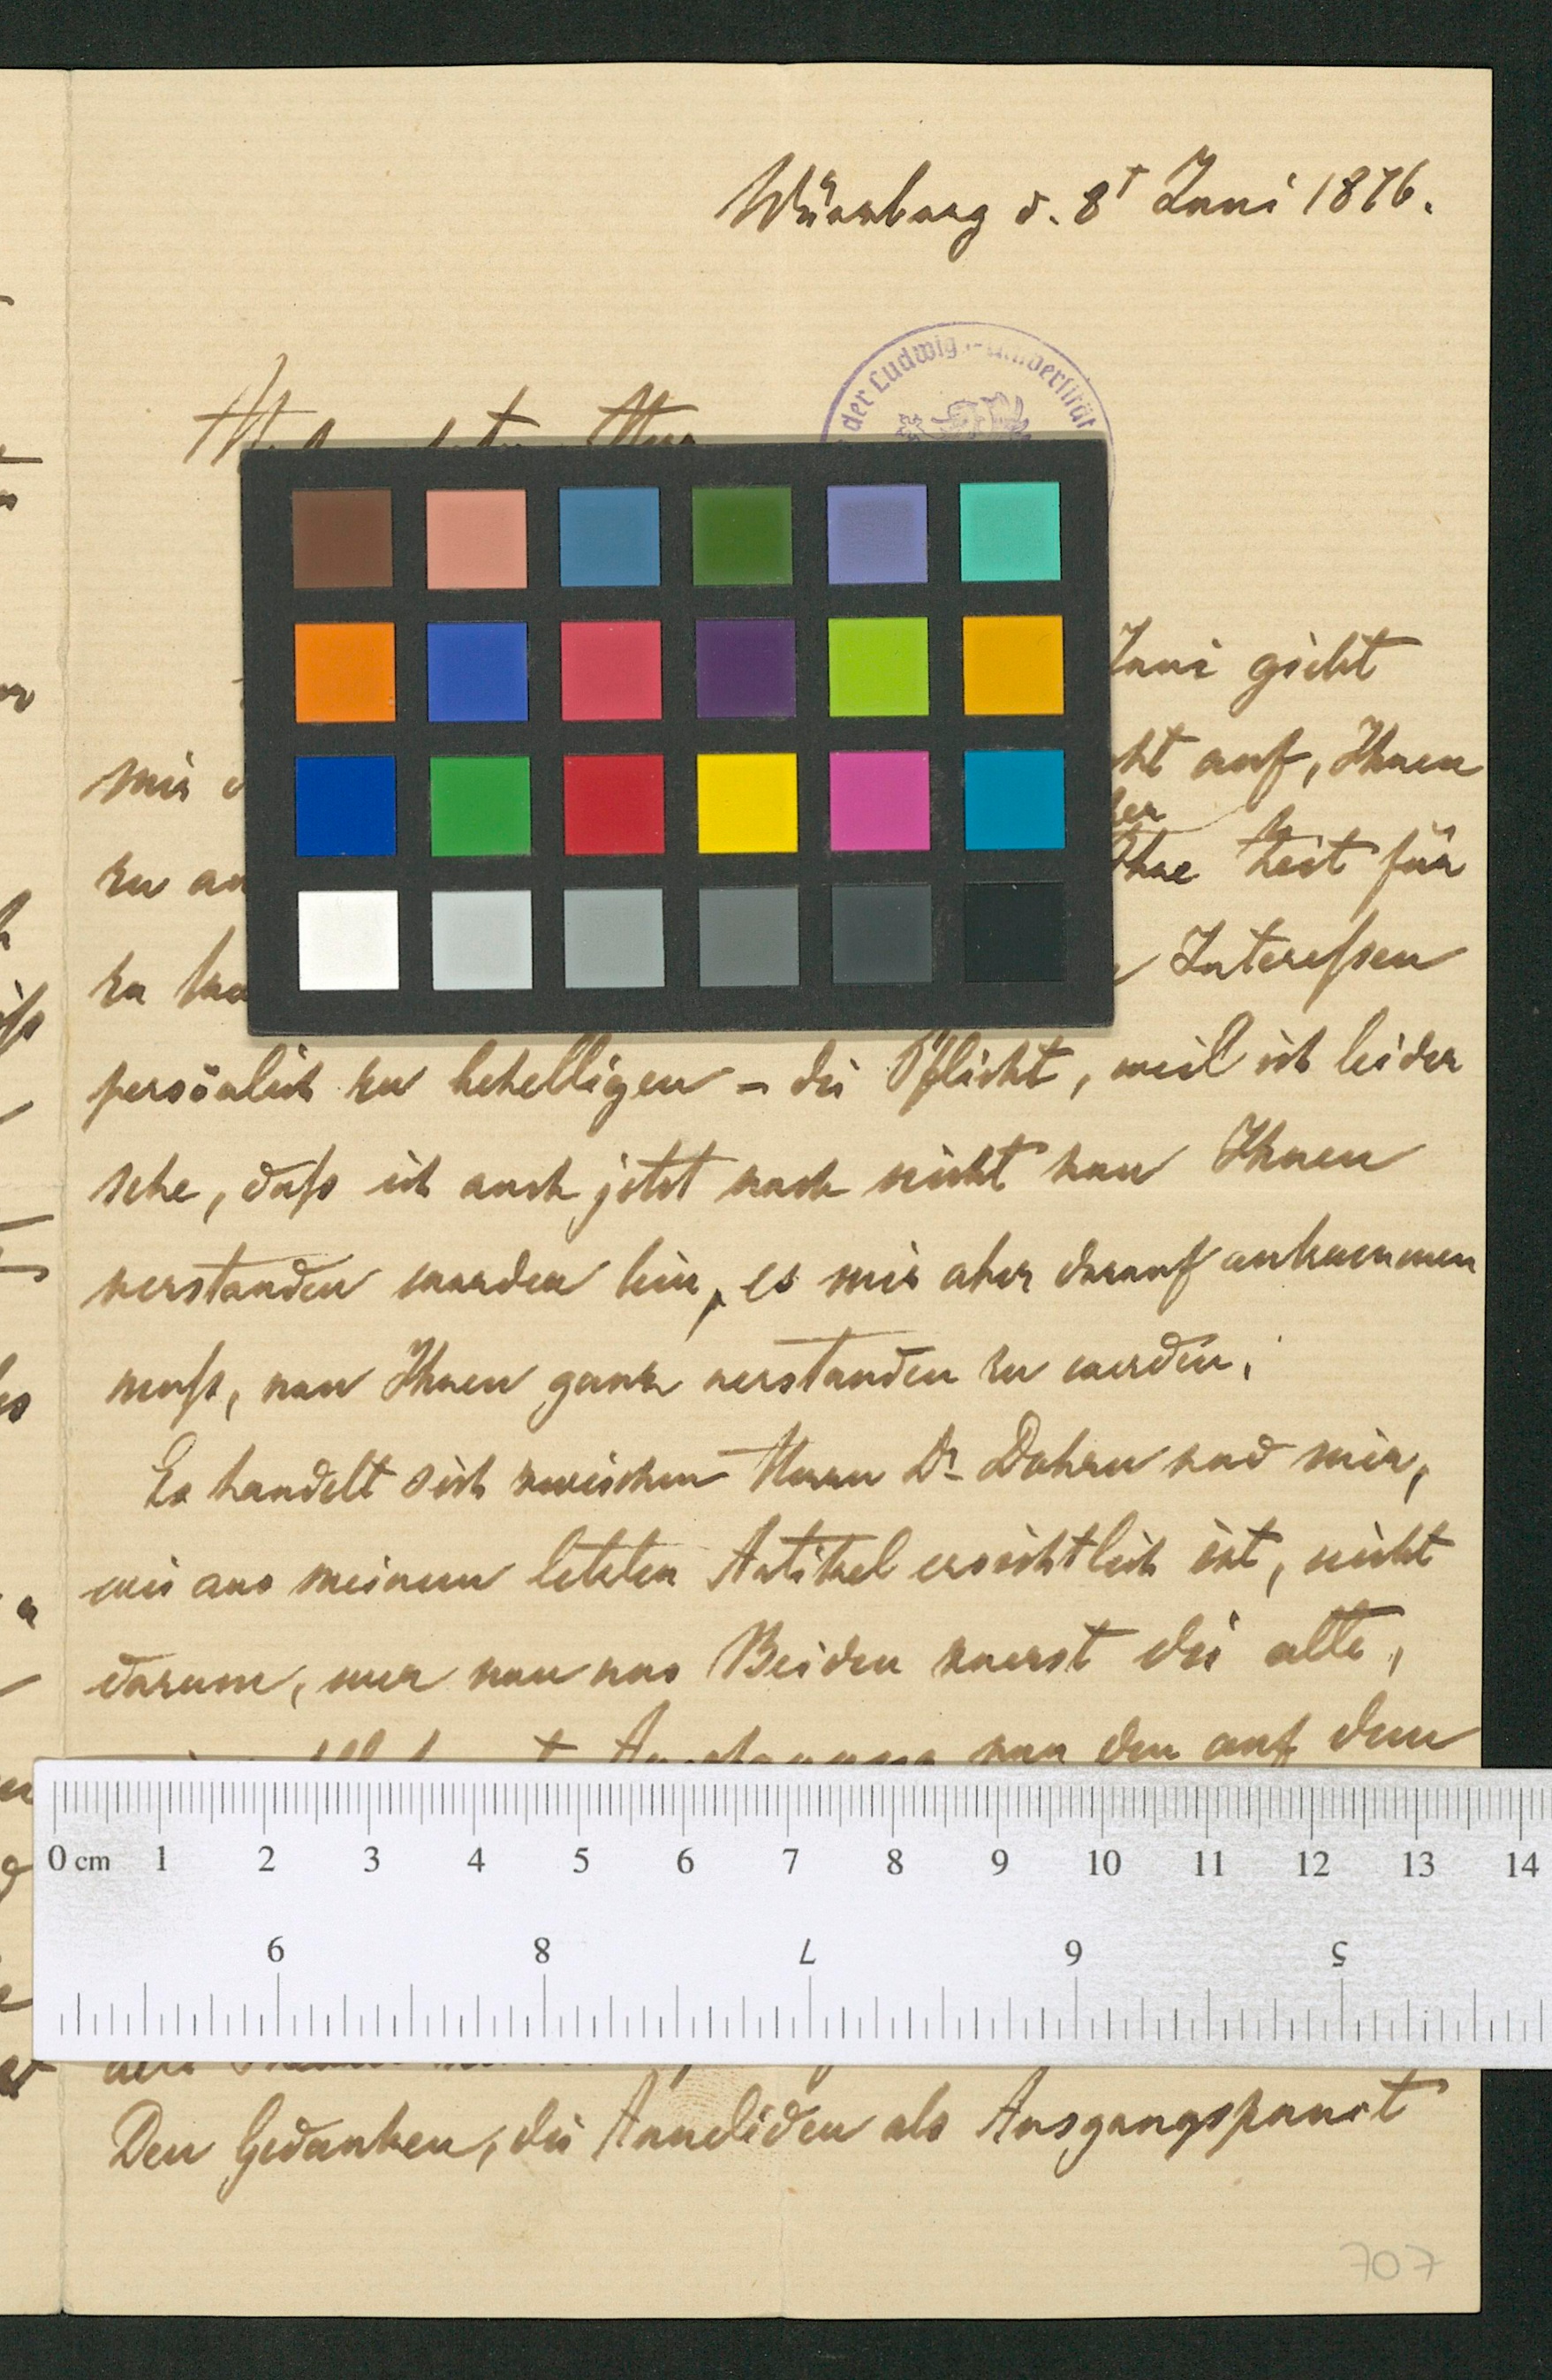 Würzburg d. 8t Juni 1876.
der Ludwig
Juni giebt
mir
auf, Ihnen
zu
Ohne Zeit für
zu
Interessen
persönlich zu behelligen – die Pflicht, weil ich leider
sehe, daß ich auch jetzt noch nicht von Ihnen
verstanden worden bin, es mir aber darauf ankommen
muß, von Ihnen ganz verstanden zu werden.
Es handelt sich zwischen Herrn Dr Dohrn und mir,
wie aus meinem letzten Artikel ersichtlich ist, nicht
darum, wer von uns Beiden zuerst die alte,
von den auf dem
0 cm 1 2 3 4 5 6 7 8 9 10 11 12 13 14
9 8 7 6 5
Den Gedanken, die Anneliden als Ausgangspunct
707